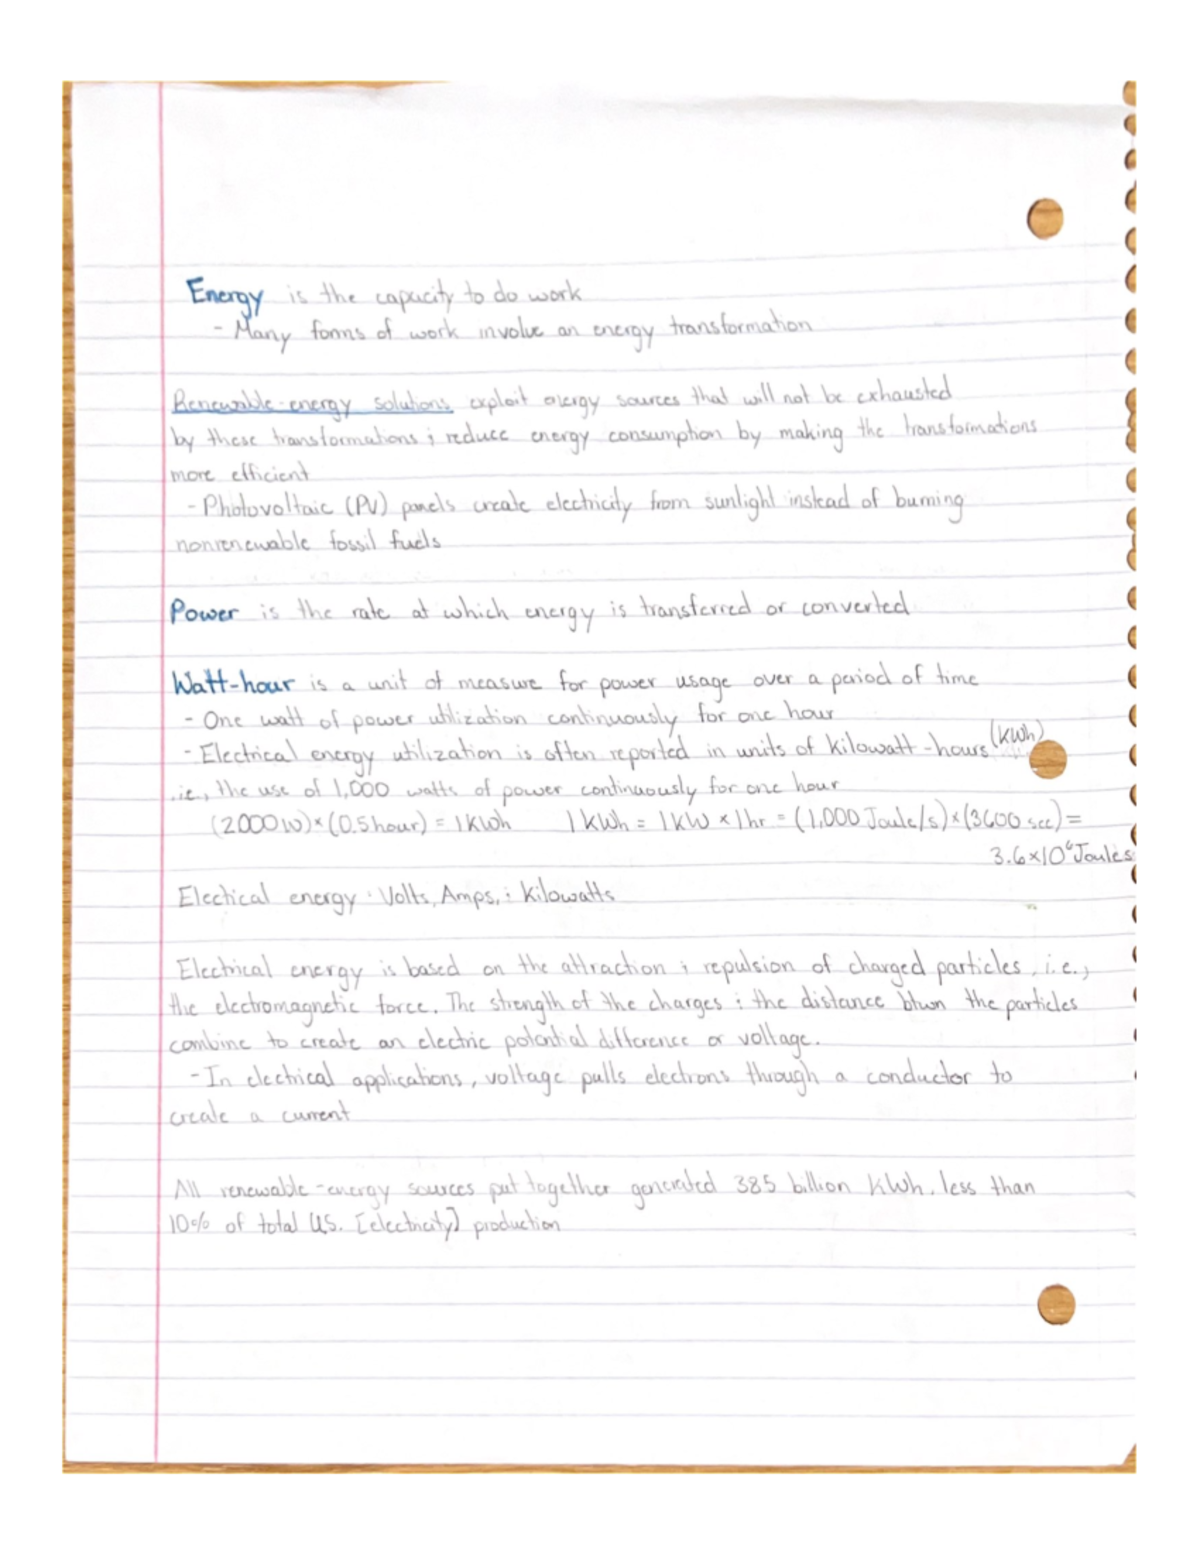 Energy is the capacity to do work
- Many forms of work involve an energy transformation
Renewable-energy solutions exploit energy sources that will not be exhausted
by these transformations & reduce energy consumption by making the transformations
more efficient
- Photovoltaic (PV) panels create electricity from sunlight instead of burning
nonrenewable fossil fuels
Power is the rate at which energy is transferred or converted
Watt-hour is a unit of measure for power usage over a period of time
- One watt of power utilization continuously for one hour
- Electrical energy utilization is often reported in units of kilowatt-hours (kWh)
i.e., the use of 1,000 watts of power continuously for one hour
(2000W)×(0.5hour) = 1kWh 1kWh = 1kW × 1hr = (1,000 Joule/s)×(3600 sec) =
3.6×10⁶ Joules
Electical energy: Volts, Amps, & Kilowatts
Electrical energy is based on the attraction & repulsion of charged particles, i.e.,
the electromagnetic force. The strength of the charges & the distance btwn the particles
combine to create an electric potential difference or voltage.
- In electrical applications, voltage pulls electrons through a conductor to
create a current
All renewable-energy sources put together generated 385 billion kWh, less than
10% of total U.S. [electricity] production